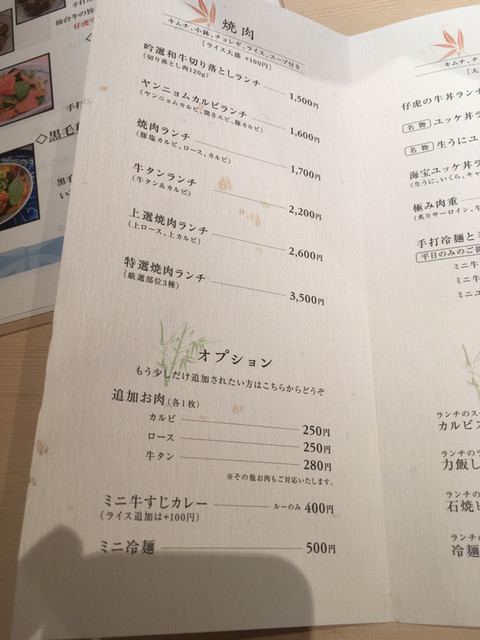 焼肉
キムチ、小鉢、チョレギ、ライス、スープ付き
［ライス大盛 +100円］
吟選和牛切り落としランチ 1,500円
(切り落とし肉120g)
ヤンニョムカルビランチ 1,600円
(ヤンニョムカルビ、開きエビ、豚カルビ)
焼肉ランチ 1,700円
(豚塩カルビ、ロース、カルビ)
牛タンランチ 2,200円
(牛タン&カルビ)
上選焼肉ランチ 2,600円
(上ロース、上カルビ)
特選焼肉ランチ 3,500円
(厳選部位3種)
オプション
もう少しだけ追加されたい方はこちらからどうぞ
追加お肉(各1枚)
カルビ 250円
ロース 250円
牛タン 280円
※その他お肉もご対応いたします。
ミニ牛すじカレー ルーのみ 400円
(ライス追加は+100円)
ミニ冷麺 500円
キムチ、チ
［大
仔虎の牛丼ラン
名物 ユッケ丼ラ
名物 生うにユッ
海宝ユッケ丼ラ
(生うに、いくら、キャ
極み肉重
(炙りサーロイン、牛
手打冷麺とミ
平日のみのご提
ミニ牛
ミニ
ミニユ
ランチのス
カルビス
ランチのラ
力飯し
ランチの
石焼ビ
ランチの
冷麺
仙台牛の旨
仔虎
手打
◇黒毛
黒毛
い